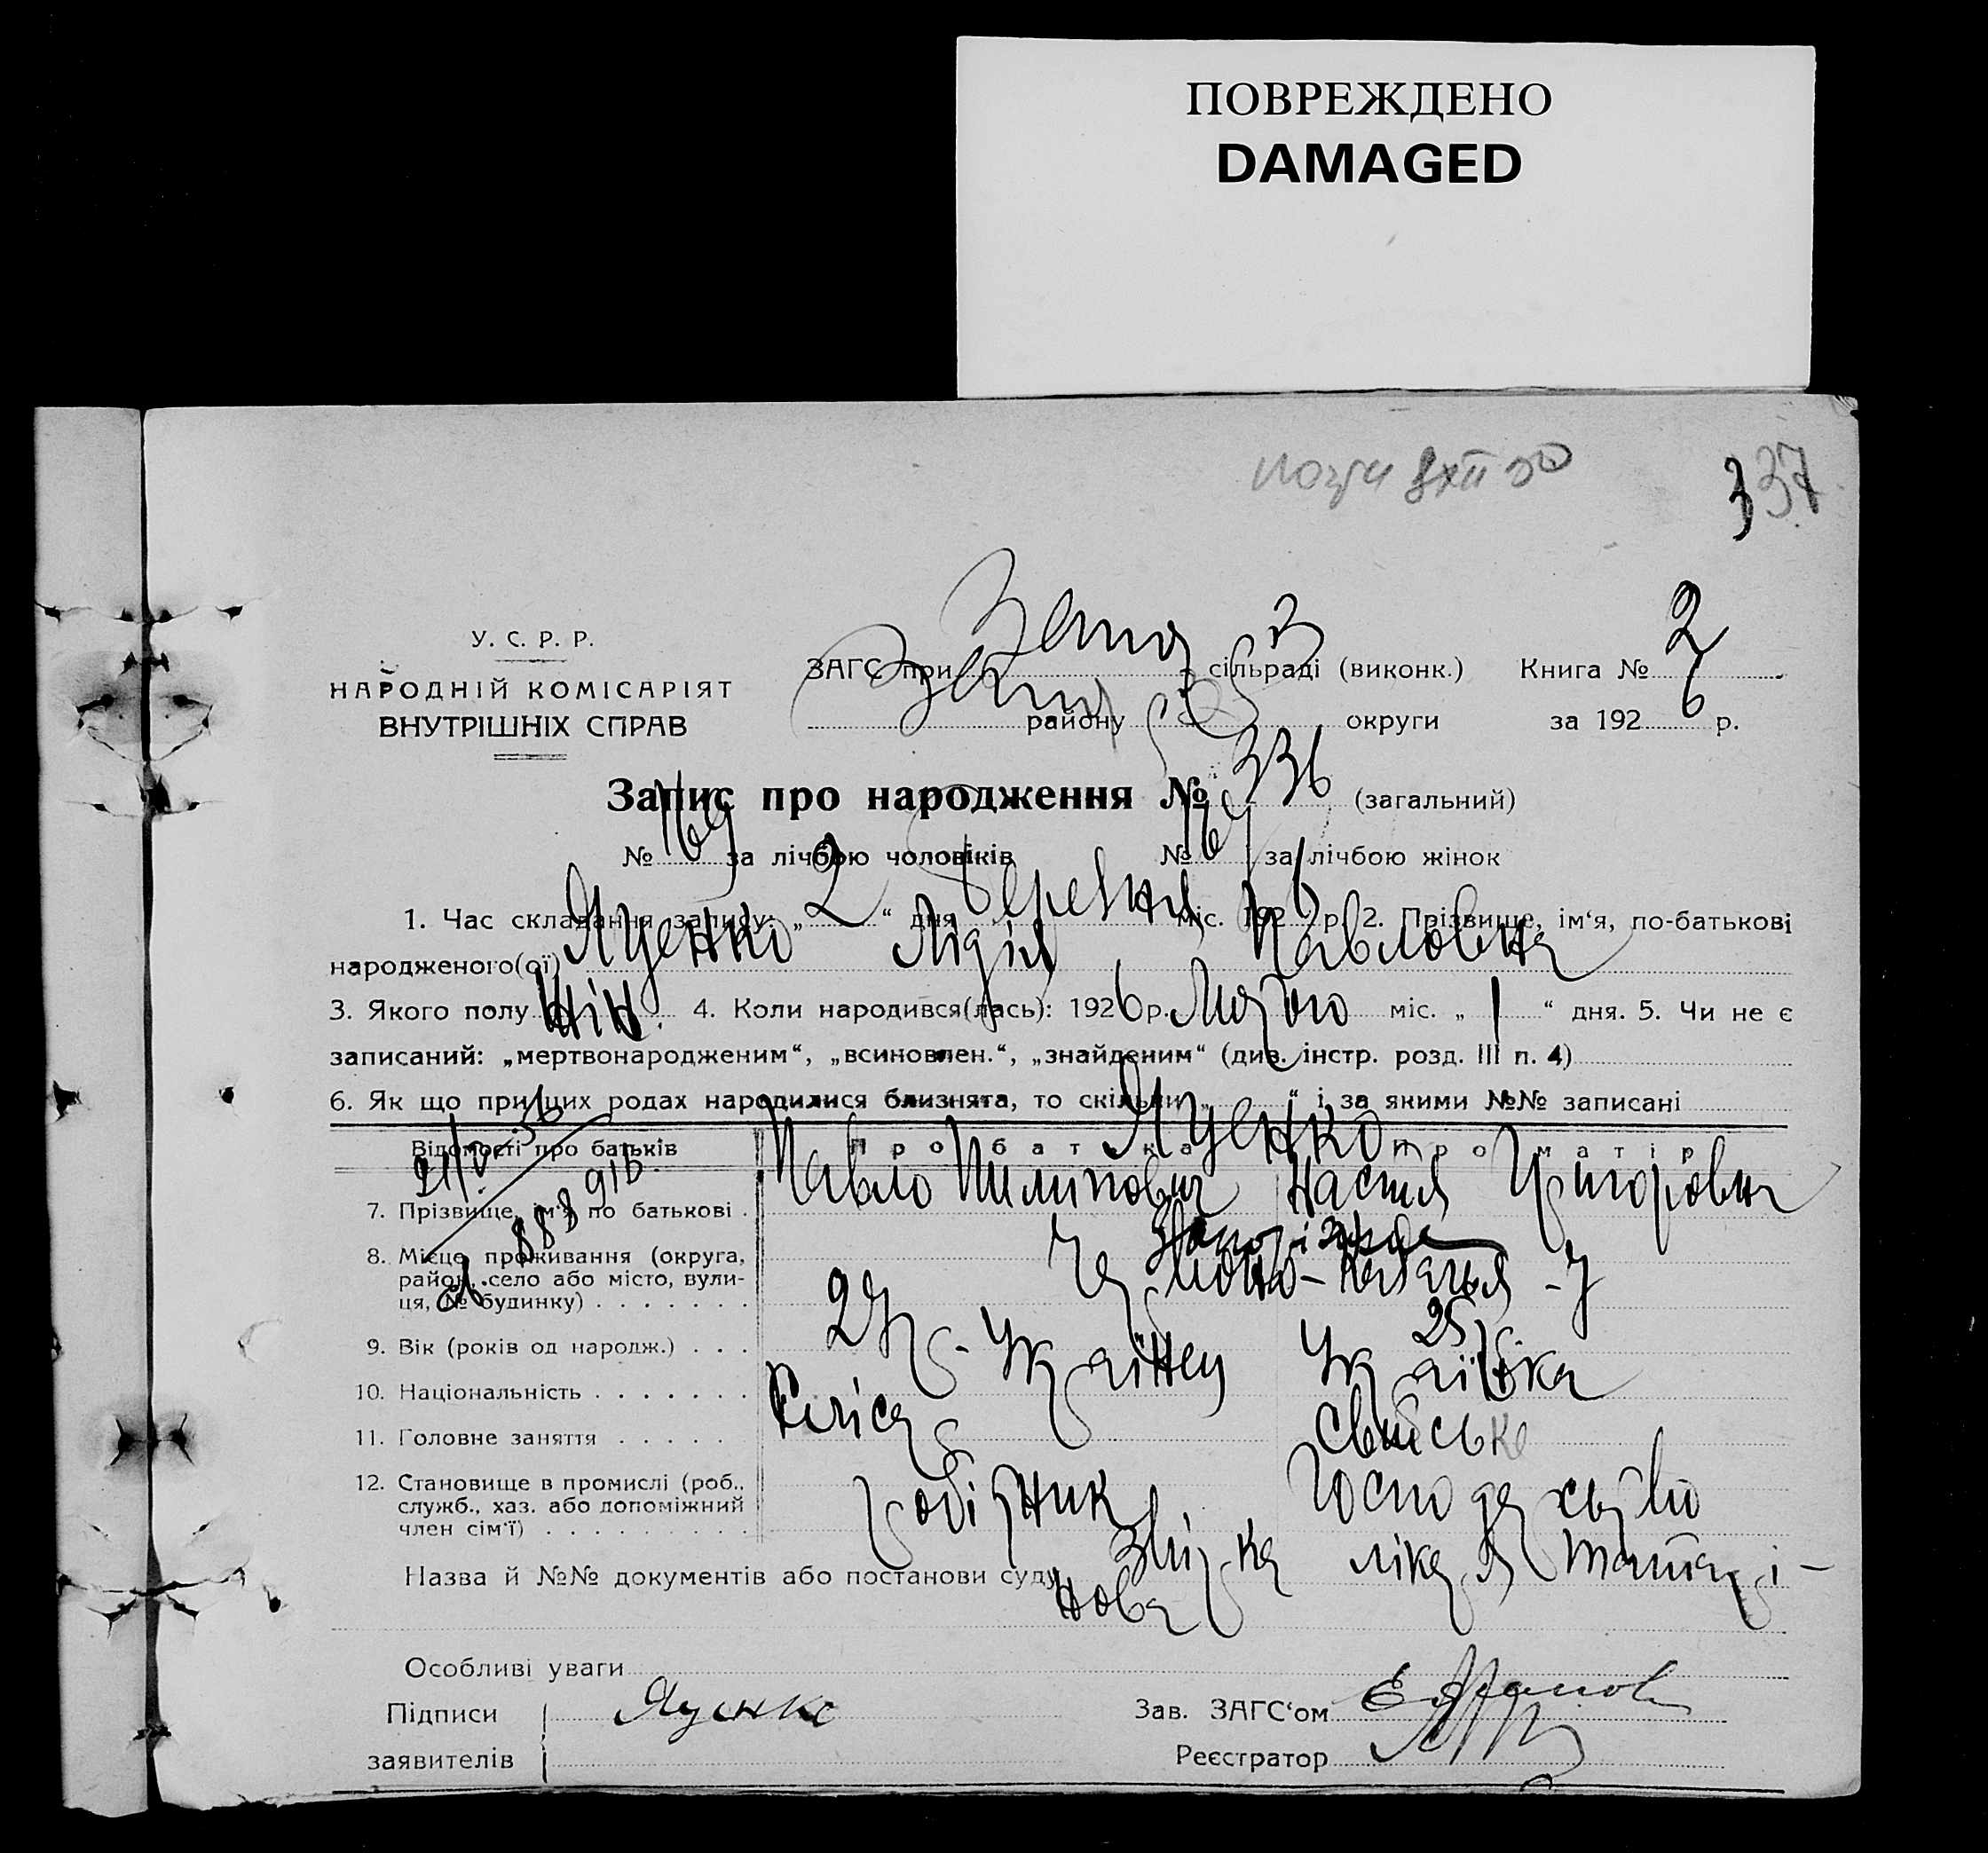 ПОВРЕЖДЕНО
DAMAGED
337
У. С. Р. Р.
НАРОДНІЙ КОМІСАРІЯТ
ВНУТРІШНІХ СПРАВ
ЗАГС при сільраді (виконк.) Книга № 2
району округи за 1926 р.
Запис про народження № 336 (загальний)
№ 169 за лічбою чоловіків № 167 за лічбою жінок
1. Час складання запису: „2“ дня березня міс. 1926 р. 2. Прізвище, ім‘я, по-батькові
народженого(ої) Яценко Лідія Павловна
3. Якого полу жін. 4. Коли народився(лась): 1926 р. Лютого міс. „1“ дня. 5. Чи не є
записаний: „мертвонародженим“, „всиновлен.“, „знайденим“ (див. інстр. розд. III п. 4)
6. Як що при цих родах народилися близнята, то скільки „ “ і за якими №№ записані
Відомості про батьків Про батька Про матір
Яценко
7. Прізвище, ім‘я по батькові . Павло Пилипович Настя Григоровна
8. Місце проживання (округа,
район, село або місто, вули-
ця, № будинку) . . . . . . .
9. Вік (років од народж.) . . . 25
10. Національність . . . . . . . Українец Українка
11. Головне заняття . . . . . свійське
12. Становище в промислі (роб.,
служб., хаз. або допоміжний
член сім‘ї) . . . . . . . . . робітник господарство
Назва й №№ документів або постанови суду Звірка лікаря
нова
Особливі уваги
Підписи Яценко Зав. ЗАГС‘ом
заявителів Реєстратор